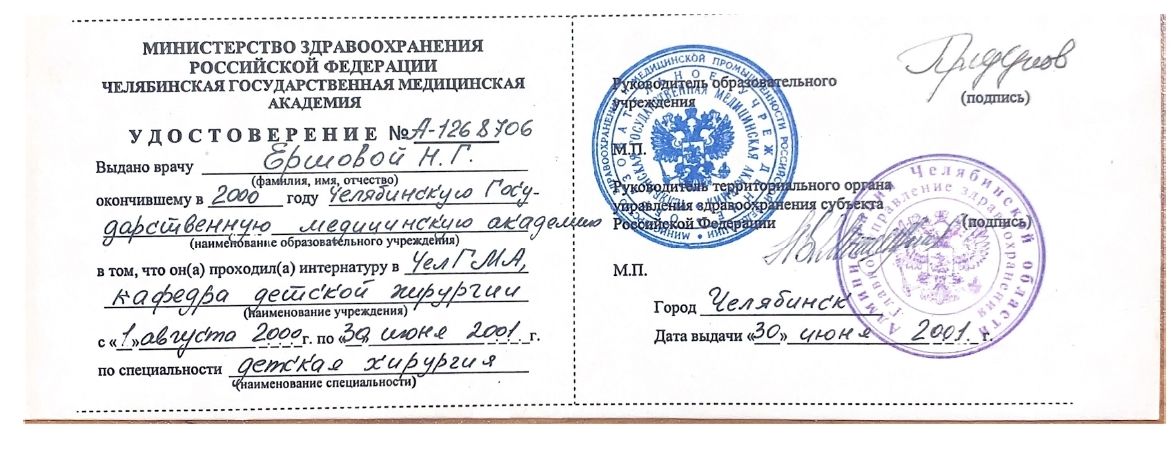 МИНИСТЕРСТВО ЗДРАВООХРАНЕНИЯ
РОССИЙСКОЙ ФЕДЕРАЦИИ
ЧЕЛЯБИНСКАЯ ГОСУДАРСТВЕННАЯ МЕДИЦИНСКАЯ
АКАДЕМИЯ
УДОСТОВЕРЕНИЕ №А-1268706
Выдано врачу Ершовой Н.Г.
(фамилия, имя, отчество)
окончившему в 2000 году Челябинскую Госу-
дарственную медицинскую академию
(наименование образовательного учреждения)
в том, что он(а) проходил(а) интернатуру в ЧелГМА,
кафедра детской хирургии
(наименование учреждения)
с «1» августа 2000г. по «30» июня 2001. г.
по специальности детская хирургия
(наименование специальности)
Руководитель образовательного
учреждения
(подпись)
М.П.
Руководитель территориального органа
управления здравоохранения субъекта
Российской Федерации (подпись)
М.П.
Город Челябинск
Дата выдачи «30» июня 2001. г.
ГОСУДАРСТВЕННАЯ МЕДИЦИНСКАЯ АКАДЕМИЯ
Челябинской области
Главное управление здравоохранения